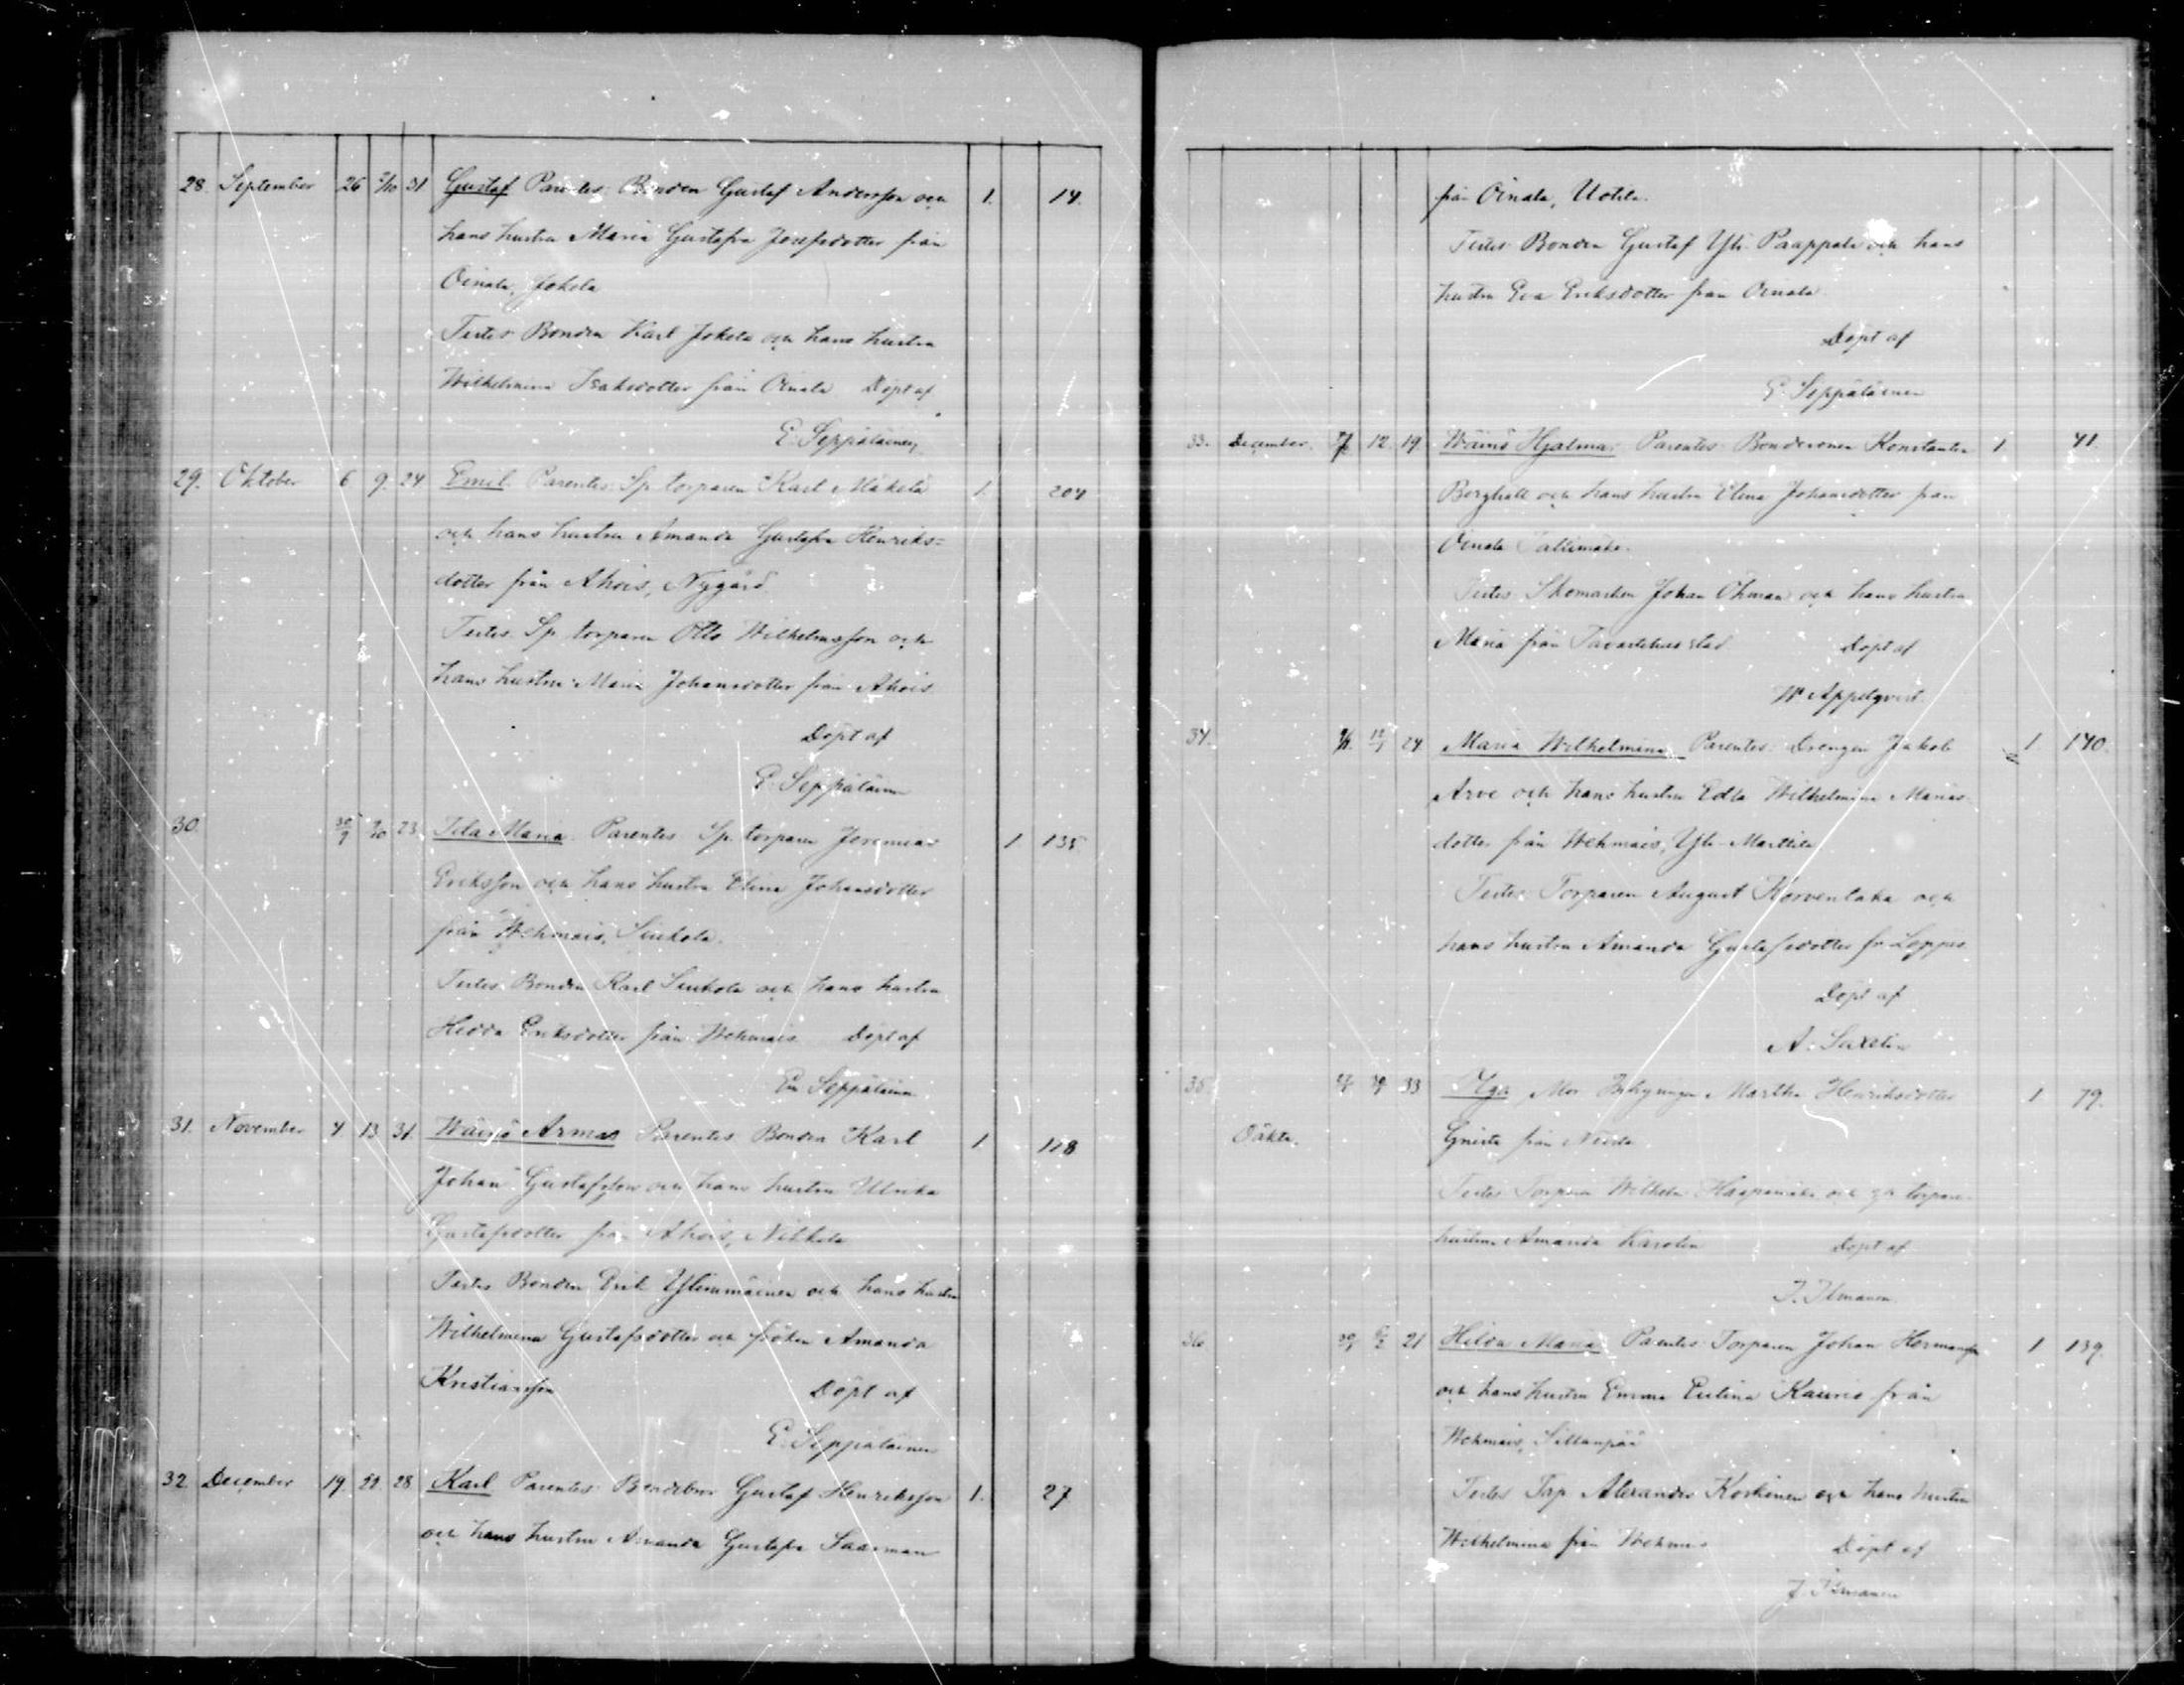 28. September 26 2/10 31 Gustaf Parentes: Bonden Gustaf Andersson och 1. 14.
hans hustru Maria Gustafva Josefsdotter från
Oinala, Jokela
Testes Bonden Karl Jokela och hans hustru
Wilhelmina Isaksdotter från Oinala Döpt af
E. Seppäläinen
29. Oktober 6 9. 24 Emil. Parentes: Sp. torparen Karl Mäkelä 1. 204
och hans hustru Amanda Gustafva Henriks=
dotter från Ahois, Nygård
Testes. Sp. torparen Otto Wilhelmsson och
hans hustru Maria Johansdotter från Ahois
Döpt af
E. Seppäläinen
30. 30/9 23 Maria. Parentes Sp. torparen Jeremias 1 135
Eriksson och hans hustru Elina Johansdotter
från Wehmais, Siukola.
Testes. Bonden Karl Siukola och hans hustru
Hedda Eriksdotter från Wehmais Döpt af
En Seppäläinen
31. November 4 13 31. Wäinö Armas Parentes Bonden Karl 1 118
Johan Gustafsson och hans hustru Ulrika
Gustafsdotter från Ahois, Nikkilä
Testes Bonden Erik Ylimmäinen och hans hustru
Wilhelmina Gustafsdotter och fröken Amanda
Kristiansson Döpt af
E. Seppäläinen
32. December 19. 22. 28 Karl Parentes Gustaf Henriksson 1. 27
och hans hustru Amanda Gustafva Saarman
från Oinala, Uotila.
Testes Bonden Gustaf Yli Paappala och hans
hustru Eva Eriksdotter från Oinala
Döpt af
E. Seppäläinen
33. December. 12. 19. Wäinö Hjalmar Parentes Bondesonen Konstantin 1. 41.
Berghäll och hans hustru Elina Johansdotter från
Oinala Tallimäki.
Testes Skomakaren Johan Öhman och hans hustru
Maria från Tavastehus stad Döpt af
W. Appelqvist.
34. 24 Maria Wilhelmina Parentes: Drengen Jakob 1 140.
Arve och hans hustru Edla Wilhelmina Marias
dotter från Wehmais, Yli-Marttila
Testes Torparen August Korvenlaka och
hans hustru Amanda Gustafsdotter fr. Loppis
Döpt af
A. Saxelin
35 33 Mor Inhysingen Martha Henriksdotter 1 79.
Oäkta. från
Testes Torparen Wilhelm Haapamäki och torpare
hustrun Amanda Karolin Döpt af
J. Ilmanen.
36 21 Hilda Maria Parentes Torparen Johan Hermansson 1 139.
och hans hustru Emma Eulina Kauris från
Wehmais, Sillanpää
Testes Alexander Koskinen och hans hustru
Wilhelmina från Wehmais Döpt af
J. Ilmanen